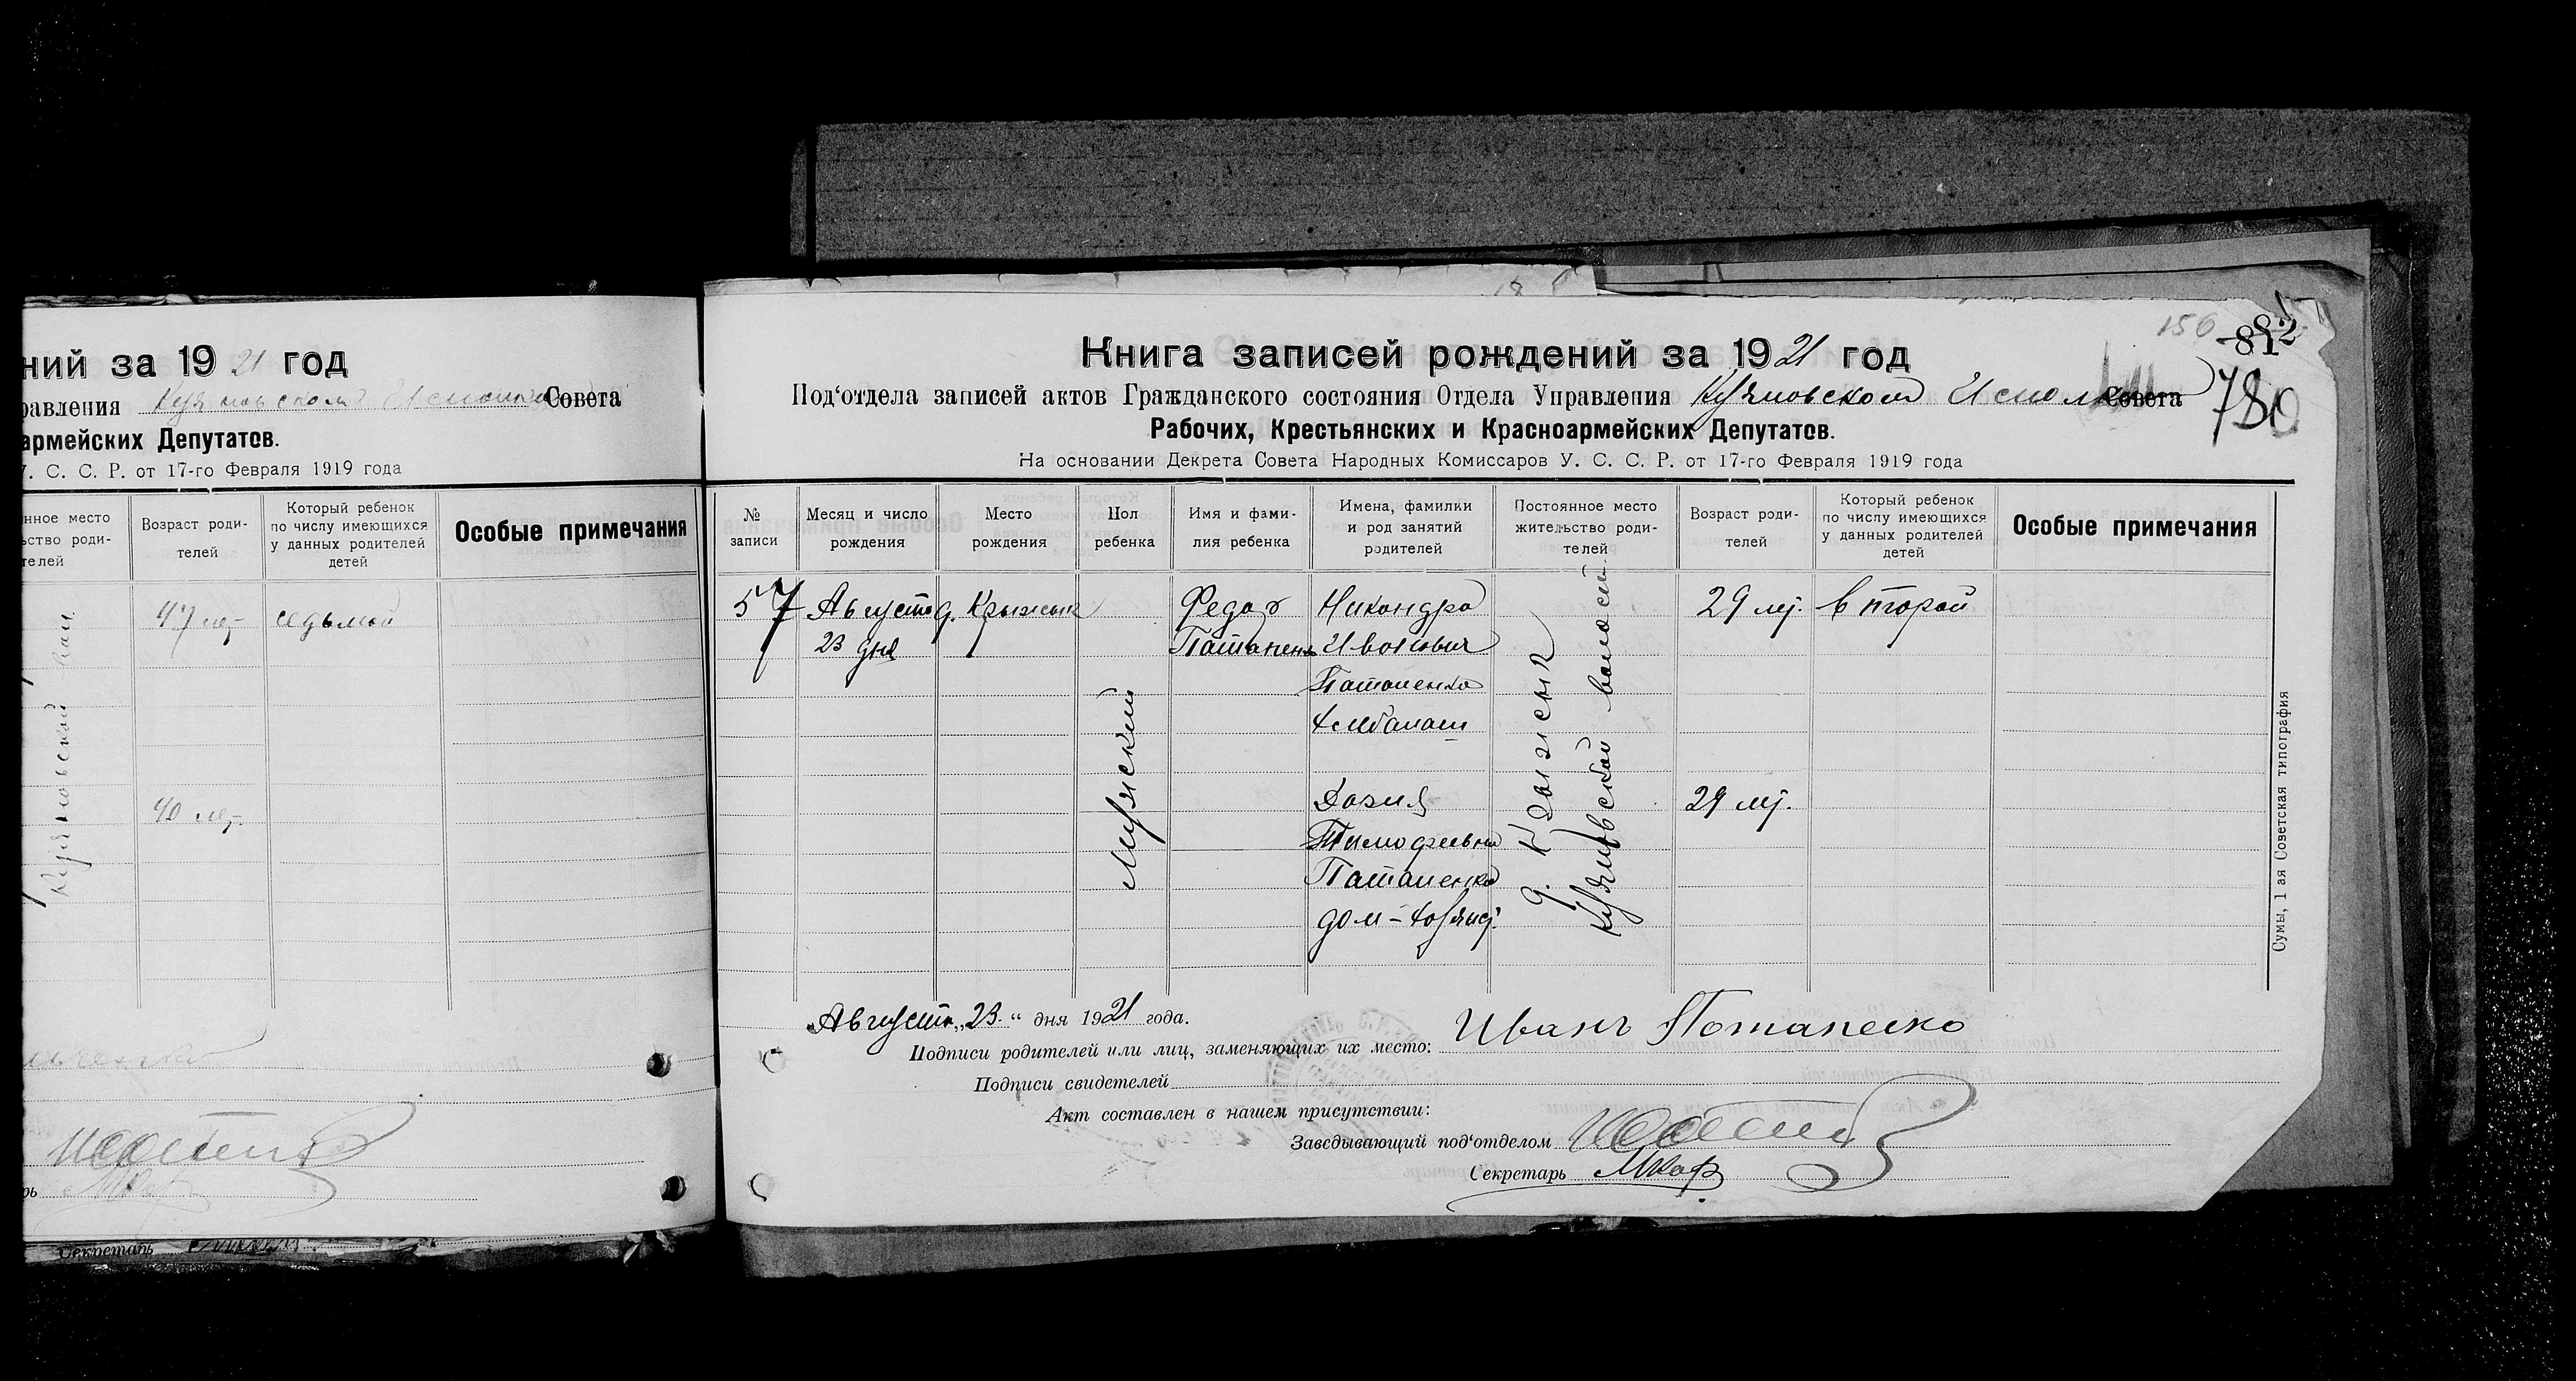 ний за 19 21 год
равления Куяновском Исполко Совета
армейских Депутатов.
У. С. С. Р. от 17-го Февраля 1919 года
нное место
ьство роди-
телей
Возраст роди-
телей
Который ребенок
по числу имеющихся
у данных родителей
детей
Особые примечания
47 лет
седьмой
40 лет
Куяновской вол.
Секретарь
156
81
82
780
Книга записей рождений за 1921 год
Под'отдела записей актов Гражданского состояния Отдела Управления Куяновском Исполком Совета
Рабочих, Крестьянских и Красноармейских Депутатов.
На основании Декрета Совета Народных Комиссаров У. С. С. Р. от 17-го Февраля 1919 года
№
записи
Месяц и число
рождения
Место
рождения
Пол
ребенка
Имя и фами-
лия ребенка
Имена, фамилии
и род занятий
родителей
Постоянное место
жительство роди-
телей
Возраст роди-
телей
Который ребенок
по числу имеющихся
у данных родителей
детей
Особые примечания
57
Августа
23 дня
д. Крыжик
Мужской
Федор
Патапенк
Никандра
Иванович
Патапенко
хлебопаш
Дария
Тимофеевна
Патапенко
дом-хозяиц.
д. Крыжик
Куяновской волости
29 лет.
29 лет.
второй
Августа „23“ дня 1921 года.
Подписи родителей или лиц, заменяющих их место: Иванъ Потапенко
Подписи свидетелей
Акт составлен в нашем присутствии:
Заведывающий под'отделом
Секретарь
Сумы, 1 ая Советская типография